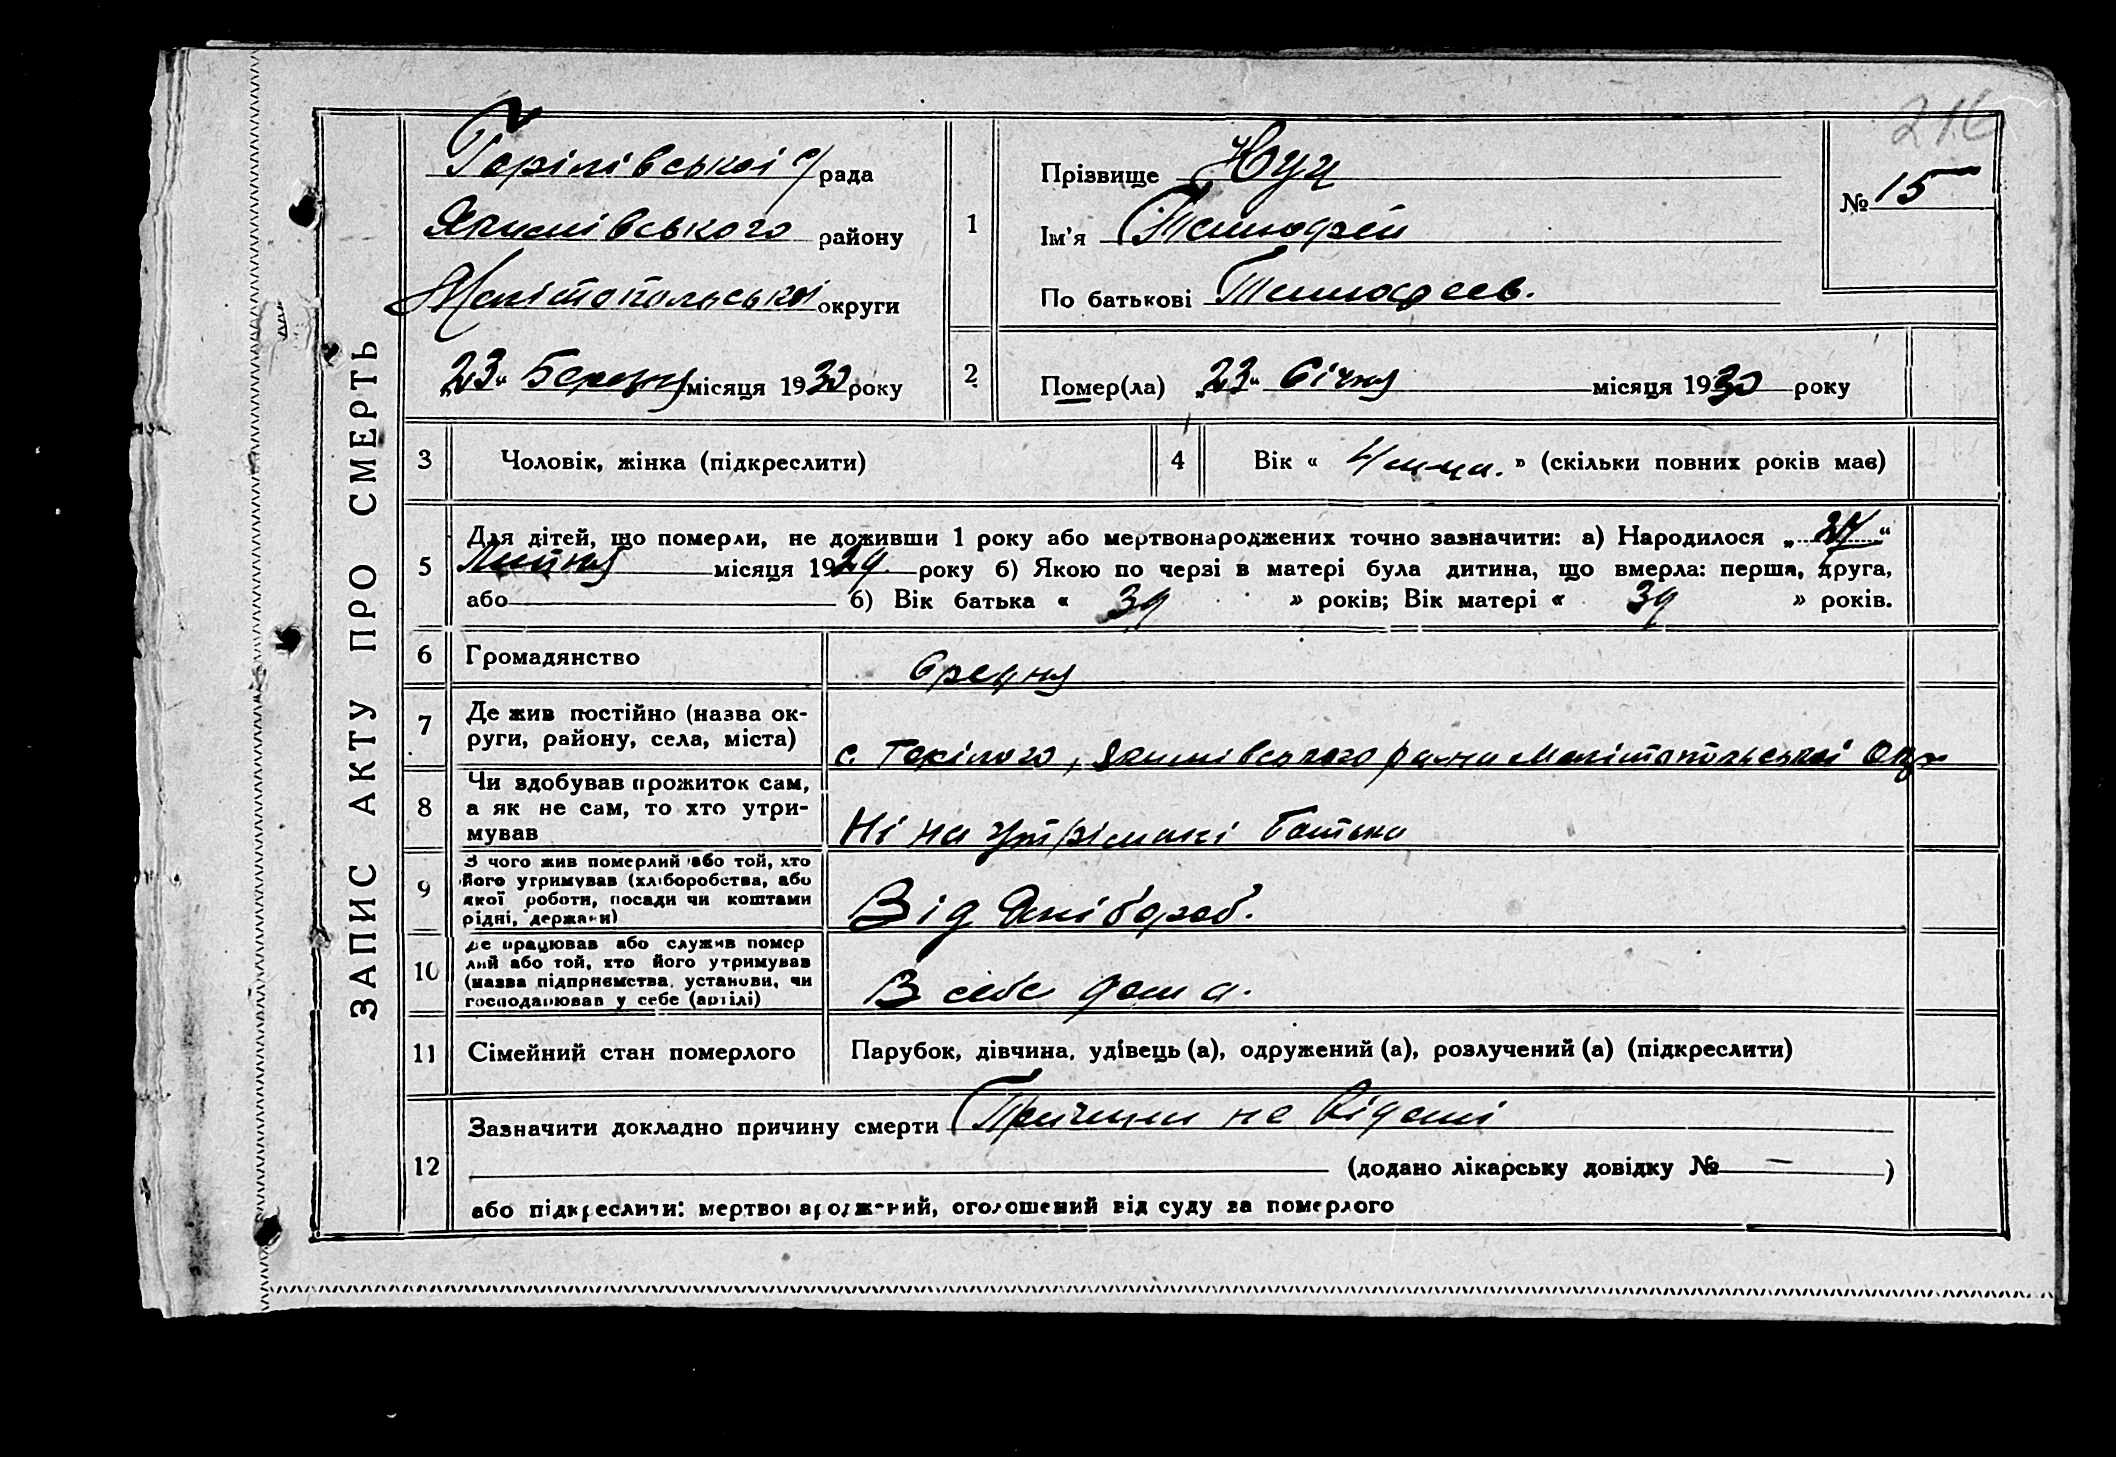 ЗАПИС АКТУ ПРО СМЕРТЬ
216
Горілівської с/рада
Якимівського району
Мелітопольської округи
„23“ Березня місяця 1930 року
1
Прізвище Куц
Ім'я Тимофей
По батькові Тимофеев.
№ 15
2
Помер(ла) „23“ Січня місяця 1930 року
3 Чоловік, жінка (підкреслити)
4 Вік « » (скільки повних років має)
5 Для дітей, що померли, не доживши 1 року або мертвонароджених точно зазначити: а) Народилося „ “
Липня місяця 1929. року б) Якою по черзі в матері була дитина, що вмерла: перша, друга,
або б) Вік батька « 39 » років; Вік матері « 39 » років.
6 Громадянство
7 Де жив постійно (назва ок-
руги, району, села, міста)
с. Горілого, Якимівського району Мелітопольської Окр
8 Чи здобував прожиток сам,
а як не сам, то хто утри-
мував
Ні на утрімані батька
9 З чого жив померлий або той, хто
його утримував (хліборобства, або
якої роботи, посади чи коштами
рідні, держави)
Від хлібороб.
10 Де працював або служив помер
лий або той, хто його утримував
(назва підприємства, установи, чи
господарював у себе (артілі)
В себе дома.
11 Сімейний стан померлого
Парубок, дівчина, удівець (а), одружений (а), розлучений (а) (підкреслити)
12 Зазначити докладно причину смерти Причини не відомі
(додано лікарську довідку № — )
або підкреслити: мертвонароджений, оголошений від суду за померлого